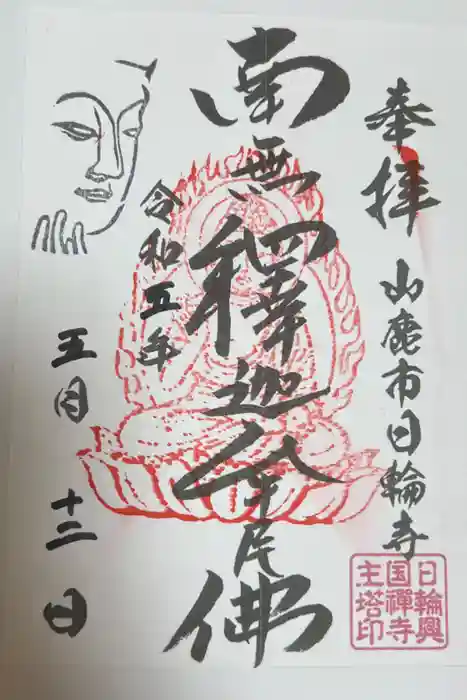 奉拝
山鹿市日輪寺
日輪興
国禅寺
主塔印
南無釋迦牟尼佛
令和五年
五月十二日